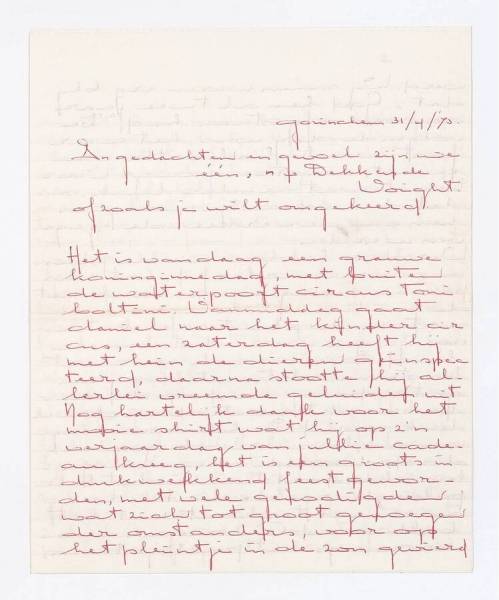 gorinchem 31/4/73.
In gedachten en gevoel zijn we
één, n.p Dekker de
Voight.
of zoals je wilt omgekeerd
Het is vandaag een grauwe
koninginnedag, met buiten
de waterpooft circus toni
boltini. Vanmiddag gaat
daniel naar het kinder cir
cus, een zaterdag heeft hij
met hein de dieren geinspec
teerd, daarna stootte hij al
lerlei vreemde geluiden uit
Nog hartelijk dank voor het
mooie shirt wat hij op z'n
verjaardag van jullie cade-
au kreeg, het is een groots in
drukwekkend feest gewor-
den, met vele genodigden
wat zich tot groot genoegen
der omstanders, voor op
het pleintje in de zon gevierd